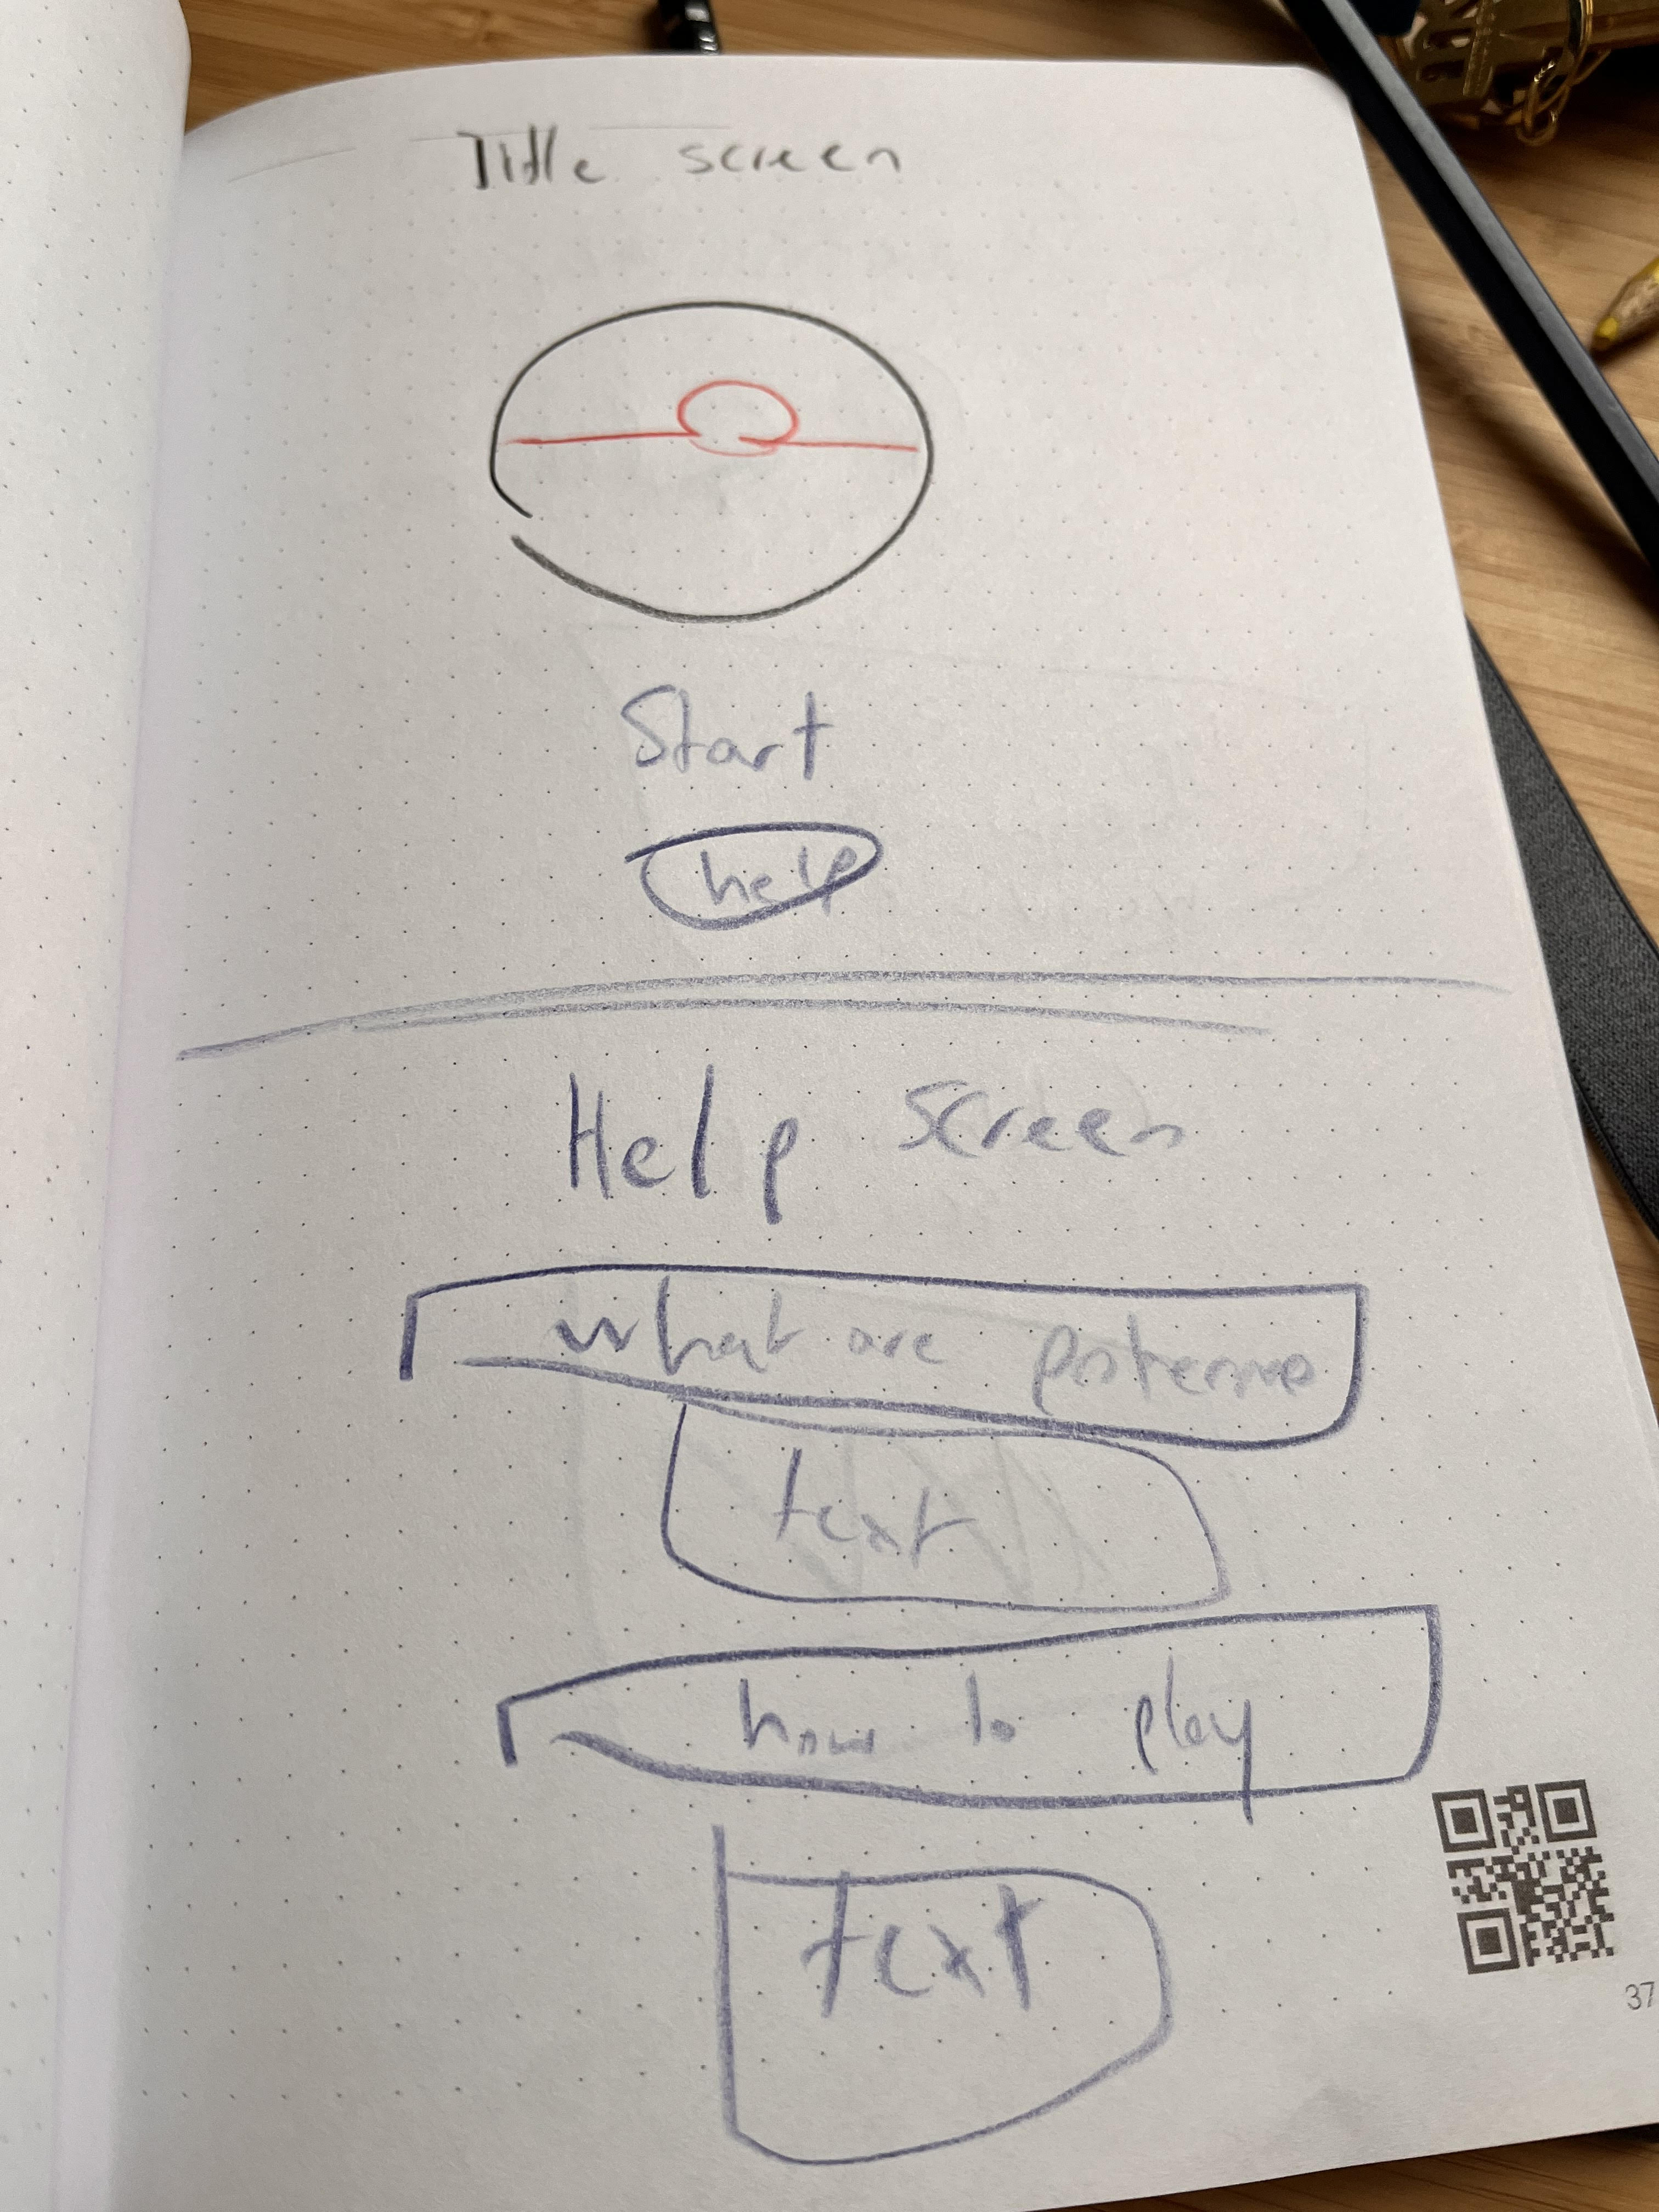 Title screen
Start
help
Help screen
what are
text
how to play
text
37